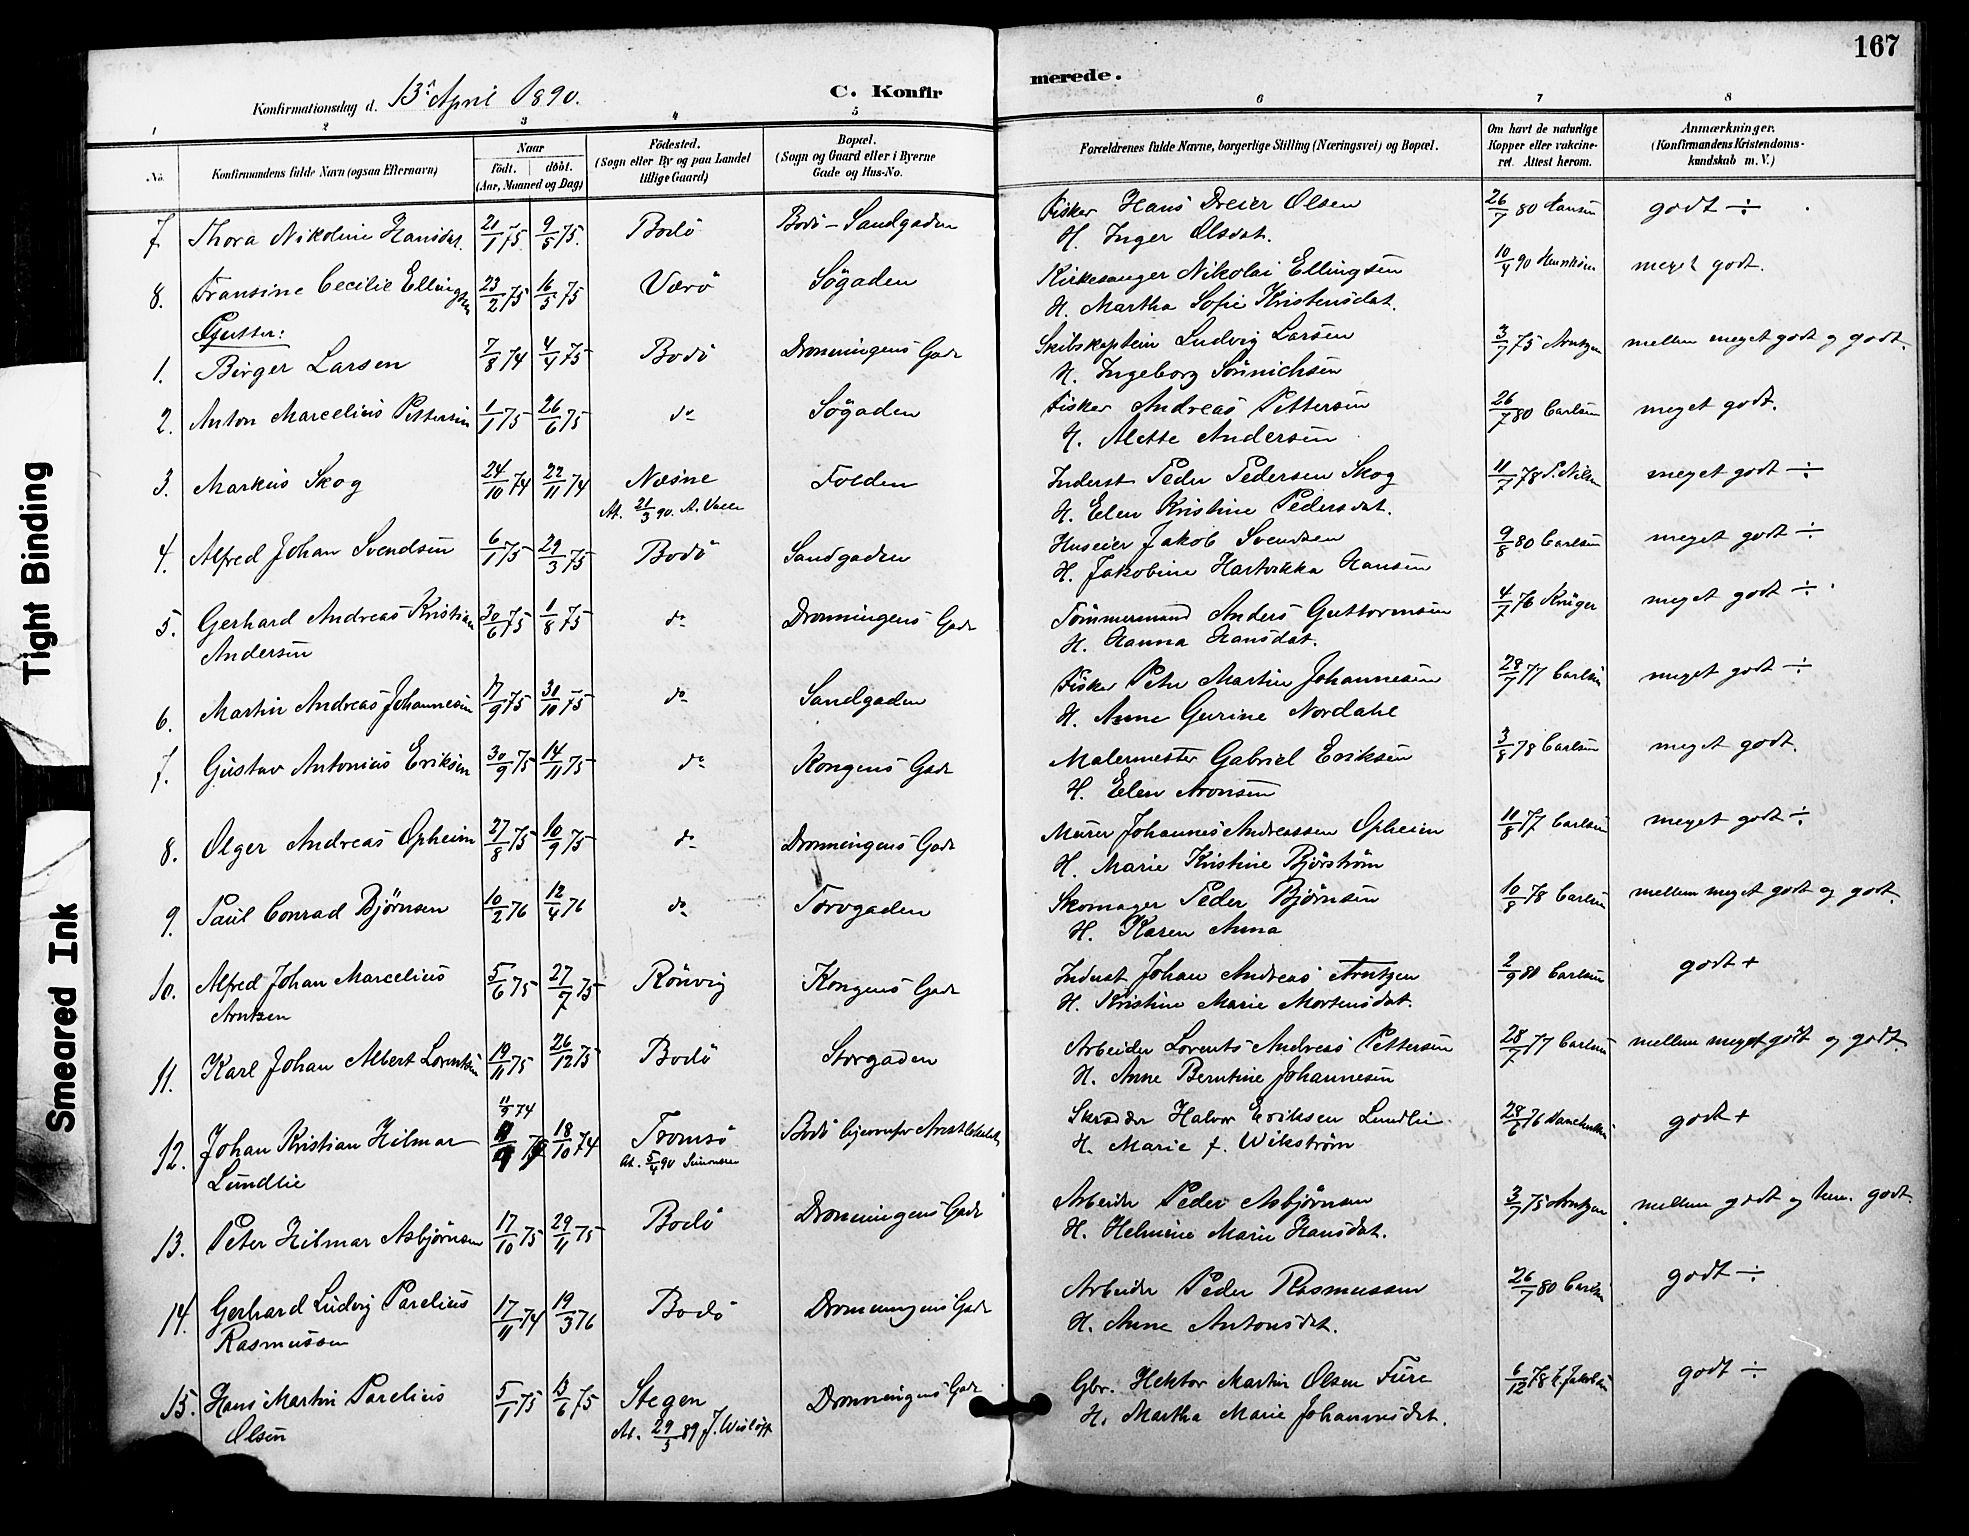 167
Konfirmationsdag d. 13de April 1890.
C. Konfirmerede.
1 2 3 4 5 6 7 8
No.
Konfirmandens fulde Navn (ogsaa Efternavn)
Naar
født. døbt.
(Aar, Maaned og Dag)
Födested.
(Sogn eller By og paa Landet
tillige Gaard)
Bopæl.
(Sogn og Gaard eller i Byerne
Gade og Hus-No.
Forældrenes fulde Navne, borgerlige Stilling (Næringsvei) og Bopæl.
Om havt de naturlige
Kopper eller vakcine-
ret. Attest herom.
Anmærkninger.
(Konfirmandens Kristendoms-
kundskab m. V.)
7 Thora Nikoline Hansdat. 21/1 75. 9/5 75. Bodö Bodö - Sandgaden Fisker Hans Dreier Olsen 26/7 80 Hansen godt ÷
H. Inger Olsdat.
8. Fransine Cecilie Ellingsen 23/2 75 16/5 75 Værö Sögaden Kirkesanger Nikolai Ellingsen 10/4 90 meget godt.
H. Martha Sofie Kristensdat.
Gutter:
1. Birger Larsen 7/8 74 4/4 75 Bodö Dronningens Gade Skibskaptein Ludvig Larsen 3/7 75 Arntzen mellem meget godt og godt.
H. Ingeborg Sönnichsen
2. Anton Marcelius Pettersen 1/1 75 26/6 75 do Sögaden Fisker Andreas Pettersen 26/7 80 Carlsen meget godt.
H. Alette Andersen
3. Markus Skog 24/10 74 22/11 74 Næsne Folden Inderst Peder Pedersen Skog 11/7 78 P. Nilsen meget godt ÷
At. 21/3 90. A. H. Elen Kristine Pedersdat.
4. Alfred Johan Svendsen 6/1 75 29/3 75 Bodö Sandgaden Huseier Jakob Svendsen 9/8 80 Carlsen meget godt ÷
H. Jakobine Hartvikka Hansen
5. Gerhard Andreas Kristian 30/6 75 1/8 75 do Dronningens Gade Tömmermand Anders Guttormsen 4/7 76 Krüger meget godt ÷
Andersen H. Hanna Hansdat.
6. Martin Andreas Johannesen 17/9 75 30/10 75 do Sandgaden Fisker Peter Martin Johannesen 28/7 77 Carlsen meget godt ÷
H. Anne Gurine Nordahl
7. Gustav Antonius Eriksen 30/9 75 14/11 75 do Kongens Gade Malermester Gabriel Eriksen 3/8 78 Carlsen meget godt.
H. Elen Aronsen
8. Olger Andreas Opheim 27/8 75 10/9 75 do Dronningens Gade Murer Johannes Andreassen Opheim 11/8 77 Carlsen meget godt ÷
H. Marie Kristine Björström
9. Paul Conrad Björnsen 10/2 76 12/4 76 do Torvgaden Skomager Peder Björnsen 10/8 78 Carlsen mellem meget godt og godt.
H. Karen Anna
10. Alfred Johan Marcelius 5/6 75 27/7 75 Rönvig Kongens Gade Inderst Johan Andreas Arntzen 2/9 80 Carlsen godt +
Arntzen H. Kristine Marie Mortensdat.
11. Karl Johan Albert Lorentsen 19/11 75 26/12 75 Bodö Storgaden Arbeider Lorents Andreas Pettersen 28/7 77 Carlsen mellem meget godt og godt.
H. Anne Berntine Johannesen
11/9 74
12. Johan Kristian Hilmar 18/10 74 Tromsö Bodö Skrædder Halvor Eriksen Lundlie 28/6 76 godt +
Lundlie At. 5/4 90 Simonsen H. Marie f. Wikström
13. Peter Hilmar Asbjörnsen 17/10 75 29/11 75 Bodö Dronningens Gade Arbeider Peder Asbjörnsen 3/7 75 Arntzen mellem godt og tem. godt.
H. Helmine Marie Hansdat.
14. Gerhard Ludvig Parelius 17/11 74 19/3 76 Bodö Dronningens Gade Arbeider Peder Rasmussen 26/7 80 Carlsen godt ÷
Rasmussen H. Anne Antonsdat.
15. Hans Martin Parelius 5/1 75 13/6 75 Stegen Dronningens Gade Gbr. Hektor Martin Olsen Fure 6/12 78 Jakobsen godt ÷
Olsen At. 29/3 89 J. Wislöff H. Martha Marie Johannesdat.
Tight Binding
Smeared Ink